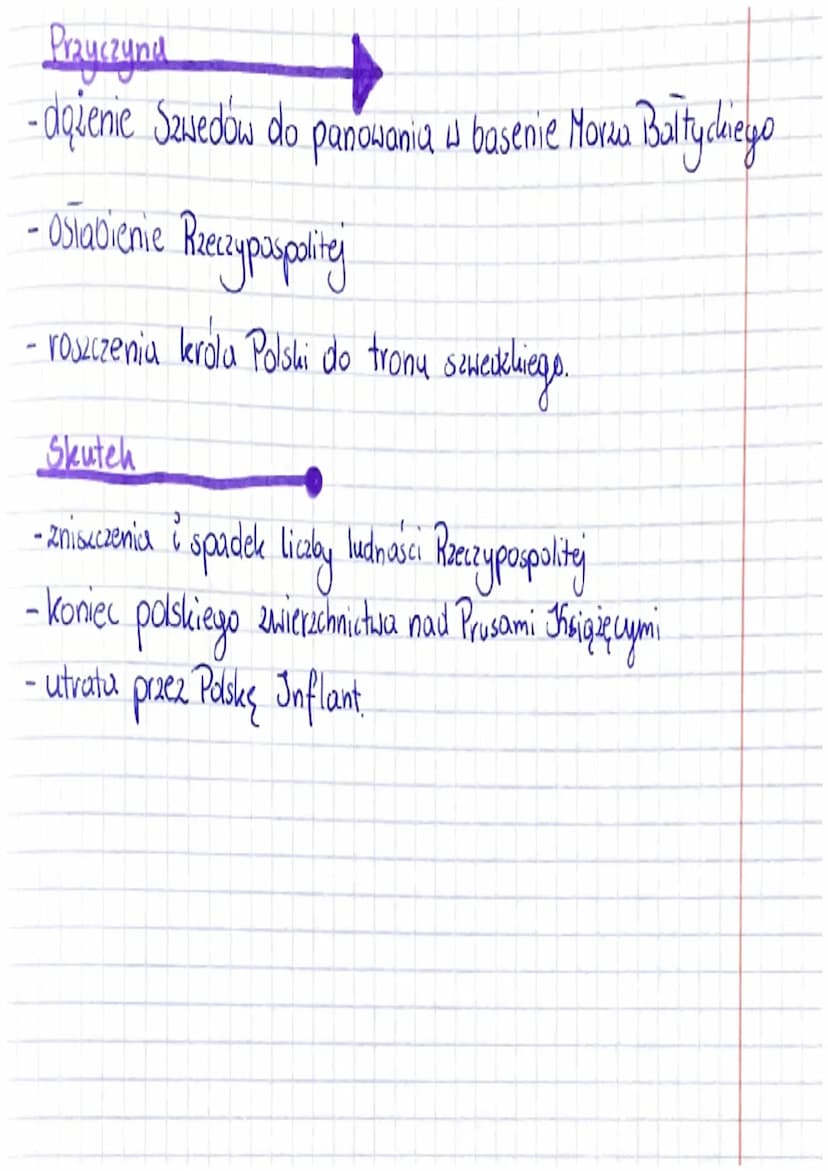 Przyczyna
- dążenie Szwedów do panowania w basenie Morza Bałtyckiego
- Osłabienie Rzeczypospolitej
- roszczenia króla Polski do tronu szwedzkiego.
Skutek
- zniszczenia i spadek liczby ludności Rzeczypospolitej
- koniec polskiego zwierzchnictwa nad Prusami Książęcymi
- utrata przez Polskę Inflant.